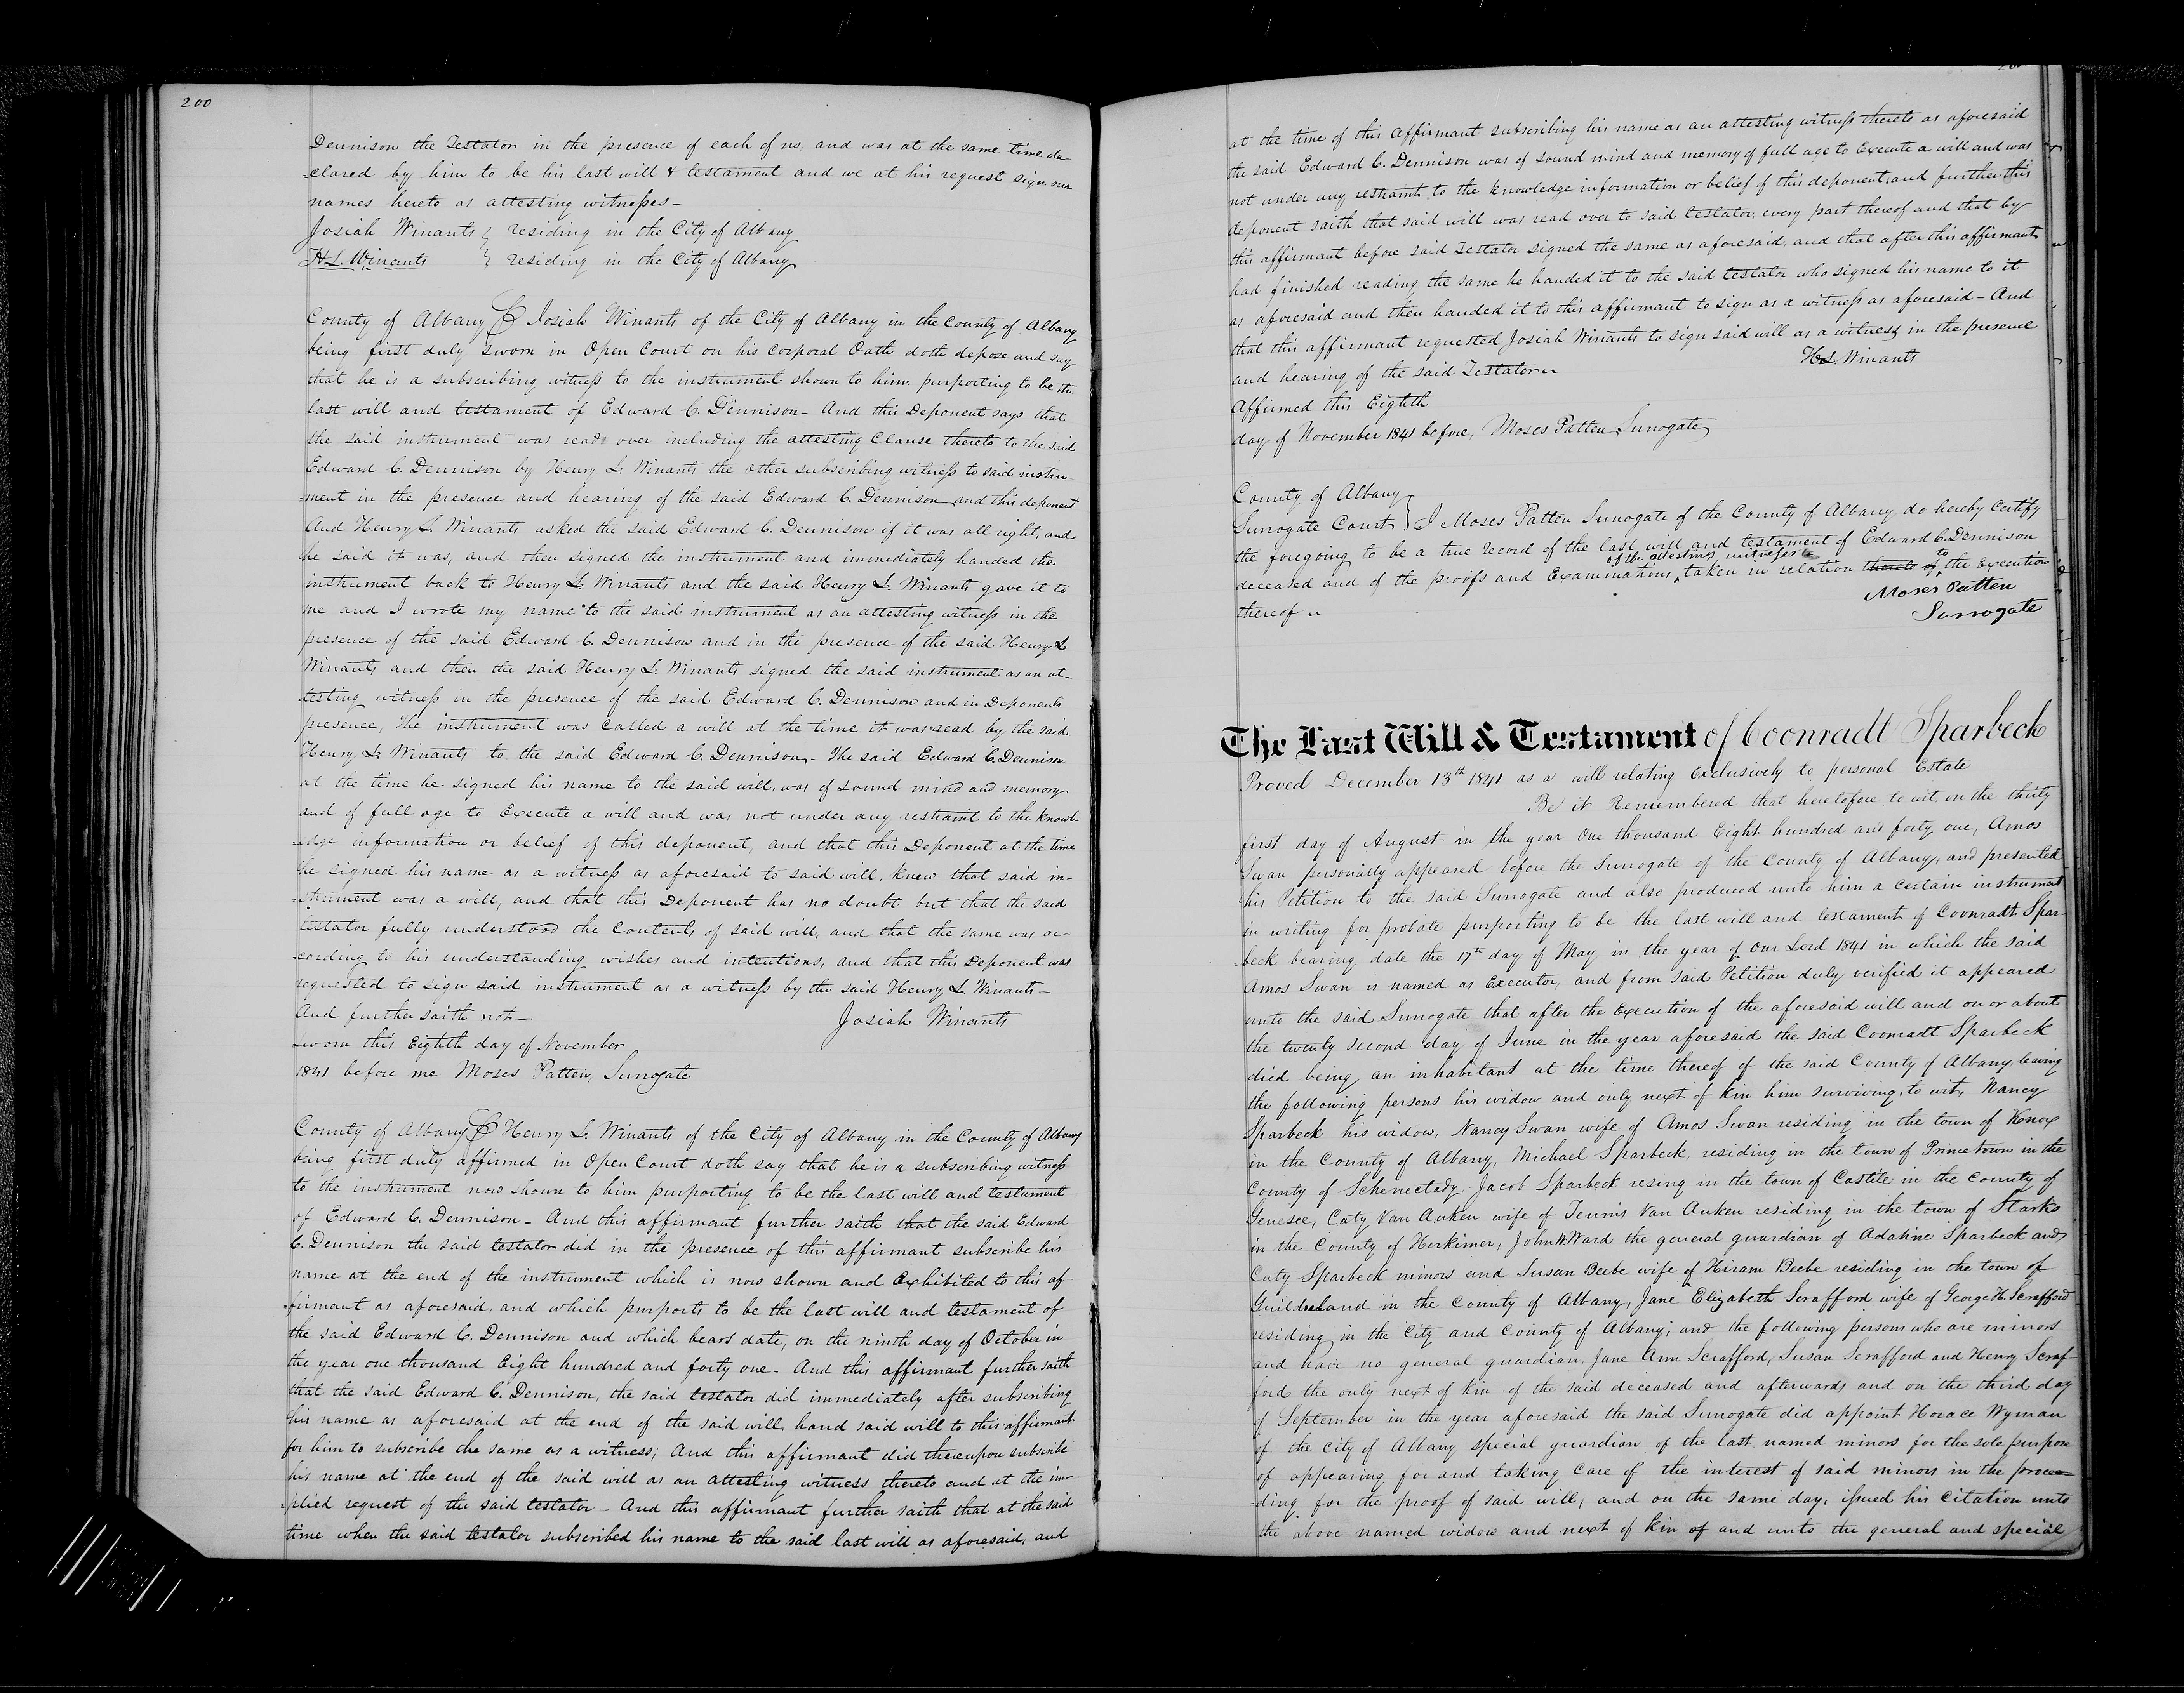 200
Dennison the Testator in the presence of each of us, and was at the same time de-
-clared by him to be his last will & testament and we at his request sign our
names hereto as attesting witnesses-
Josiah Winants } residing in the City of Albany
H.L. Winants } residing in the City of Albany
County of Albany Josiah Winants of the City of Albany in the County of Albany
being first duly sworn in Open Court on his corporal Oath doth depose and say
that he is a subscribing witness to the instrument shown to him purporting to be the
last will and testament of Edward C. Dennison- And this Deponent says that
the said instrument was read over including the attesting Clause thereto to the said
Edward C. Dennison by Henry L. Winants the other subscribing witness to said instru-
-ment in the presence and hearing of the said Edward C. Dennison and this deponent
And Henry L. Winants asked the said Edward C. Dennison if it was all right, and
he said it was, and then signed the instrument and immediately handed the
instrument back to Henry L. Winants and the said Henry L. Winants gave it to
me and I wrote my name to the said instrument as an attesting witness in the
presence of the said Edward C. Dennison and in the presence of the said Henry L
Winants and then the said Henry L. Winants signed the said instrument as an at-
testing witness in the presence of the said Edward C. Dennison and in Deponents
presence, The instrument was called a will at the time it was read by the said
Henry L. Winants to the said Edward C. Dennison- The said Edward C. Dennison
at the time he signed his name to the said will, was of sound mind and memory
and of full age to Execute a will and was not under any restraint to the knowl-
-edge information or belief of this deponent, and that this Deponent at the time
he signed his name as a witness as aforesaid to said will, knew that said in-
-strument was a will, and that this Deponent has no doubt but that the said
testator fully understood the Contents of said will, and that the same was ac-
-cording to his understanding wishes and intentions, and that this Deponent was
requested to sign said instrument as a witness by the said Henry L. Winants-
And further saith not-
Josiah Winants
Sworn this Eighth day of November
1841 before me Moses Patten, Surrogate
County of Albany Henry L. Winants of the City of Albany in the County of Albany
being first duly affirmed in Open Court doth say that he is a subscribing witness
to the instrument now shown to him purporting to be the last will and testament
of Edward C. Dennison- And this affirmant further saith that the said Edward
C. Dennison the said testator did in the presence of this affirmant subscribe his
name at the end of the instrument which is now shown and Exhibited to this af-
-firmant as aforesaid, and which purports to be the last will and testament of
the said Edward C. Dennison and which bears date, on the ninth day of October in
the year one thousand Eight hundred and forty one- And this affirmant further saith
that the said Edward C. Dennison, the said testator did immediately after subscribing
his name as aforesaid at the end of the said will, hand said will to this affirmant
for him to subscribe the same as a witness; And this affirmant did thereupon subscribe
his name at the end of the said will as an attesting witness thereto and at the im-
-plied request of the said testator- And this affirmant further saith that at the said
time when the said testator subscribed his name to the said last will as aforesaid, and
at the time of this affirmant subscribing his name as an attesting witness thereto as aforesaid
the said Edward C. Dennison was of sound mind and memory of full age to Execute a will and was
not under any restraint to the knowledge information or belief of this deponent, and further this
deponent saith that said will was read over to said testator, every part thereof and that by
this affirmant before said Testator signed the same as aforesaid, and that after this affirmant
had finished reading the same he handed it to the said testator who signed his name to it
as aforesaid and then handed it to this affirmant to sign as a witness as aforesaid- And
that this affirmant requested Josiah Winants to sign said will as a witness in the presence
and hearing of the said Testator
H.L. Winants
Affirmed this Eighth
day of November 1841 before, Moses Patten Surrogate
County of Albany
Surrogate Court } I Moses Patten Surrogate of the County of Albany do hereby Certify
the foregoing to be a true record of the last will and testament of Edward C. Dennison
deceased and of the proofs and Examinations of the attesting witnesses taken in relation thereto of to the Execution
thereof
Moses Patten
Surrogate
The Last Will & Testament of Coonradt Sparbeck
Proved December 13th 1841 as a will relating exclusively to personal Estate
Be it Remembered that heretofore to wit, on the thirty
first day of August in the year One thousand Eight hundred and forty one, Amos
Swan personally appeared before the Surrogate of the County of Albany, and presented
his Petition to the said Surrogate and also produced unto him a certain instrument
in writing for probate purporting to be the last will and testament of Coonradt Spar-
beck bearing date the 17th day of May in the year of our Lord 1841 in which the said
Amos Swan is named as Executor, and from said Petition duly verified it appeared
unto the said Surrogate that after the Execution of the aforesaid will and on or about
the twenty second day of June in the year aforesaid the said Coonradt Sparbeck
died being an inhabitant at the time thereof of the said County of Albany, leaving
the following persons his widow and only next of kin him surviving, to wit, Nancy
Sparbeck his widow, Nancy Swan wife of Amos Swan residing in the town of Knox
in the County of Albany, Michael Sparbeck, residing in the town of Princetown in the
County of Schenectady, Jacob Sparbeck resing in the town of Castile in the County of
Genesee, Caty Van Auken wife of Teunis Van Auken residing in the town of Starks
in the County of Herkimer, John W. Ward the general guardian of Adaline Sparbeck and
Caty Sparbeck minors and Susan Beebe wife of Hiram Beebe residing in the town of
Guilderland in the County of Albany, Jane Elizabeth Scrafford wife of George H. Scrafford
residing in the City and County of Albany; and the following persons who are minors
and have no general guardian, Jane Ann Scrafford, Susan Scrafford and Henry Scraf-
-ford the only next of kin of the said deceased and afterwards and on the third day
of September in the year aforesaid the said Surrogate did appoint Horace Wyman
of the City of Albany special guardian of the last named minors for the sole purpose
of appearing for and taking care of the interest of said minors in the procee-
-ding for the proof of said will, and on the same day, issued his Citation unto
the above named widow and next of kin of and unto the general and special